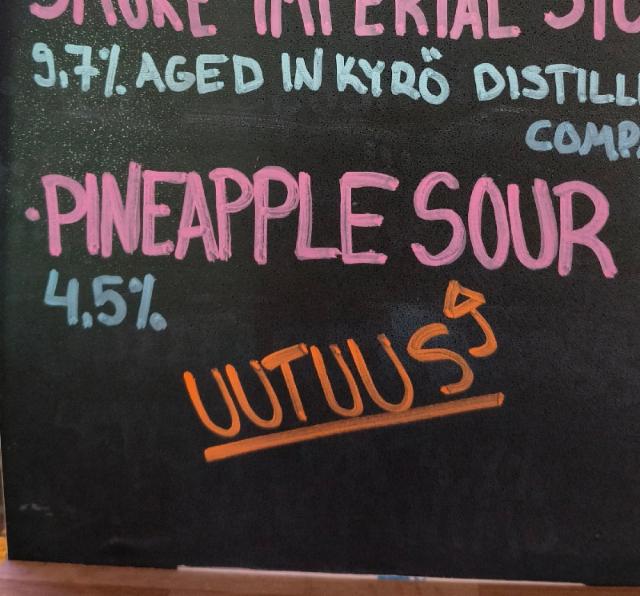 SMOKE IMPERIAL
9,7% AGED IN KYRÖ DISTILL
COMP
• PINEAPPLE SOUR
4.5%
UUTUUS